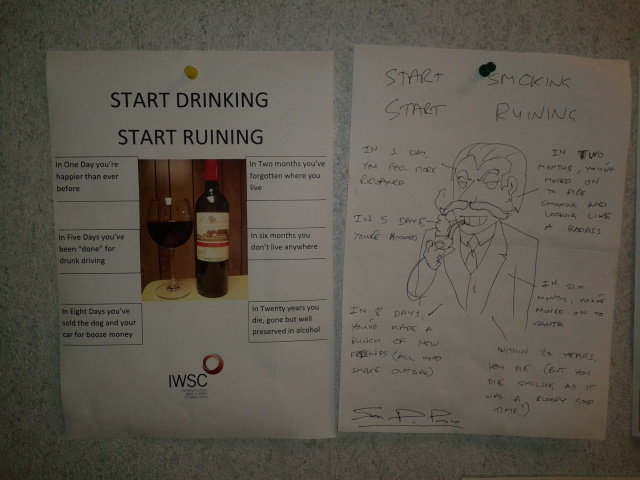 START DRINKING
START RUINING
In One Day you're
happier than ever
before
In Five Days you've
been "done" for
drunk driving
In Eight Days you've
sold the dog and your
car for booze money
In Two months you've
forgotten where you
live
In six months you
don't live anywhere
In Twenty years you
die, gone but well
preserved in alcohol
IWSC
START SMOKING
START RUINING
IN 1 DAY,
YOU FEEL MORE
RELAXED
IN 5 DAYS
YOU'RE HOOKED
IN 8 DAYS,
YOU'VE MADE A
BUNCH OF NEW
FRIENDS (ALL WHO
SMOKE OUTSIDE)
IN TWO
MONTHS, YOU'VE
MOVED ON
TO PIPE
SMOKING AND
LOOKING LIKE
A BADASS
IN SIX
MONTHS, YOU'VE
MOVED ON TO
WITHIN 20 YEARS,
YOU DIE (BUT YOU
DIE SMILING AS IT
WAS A BLOODY GOOD
TIME!)